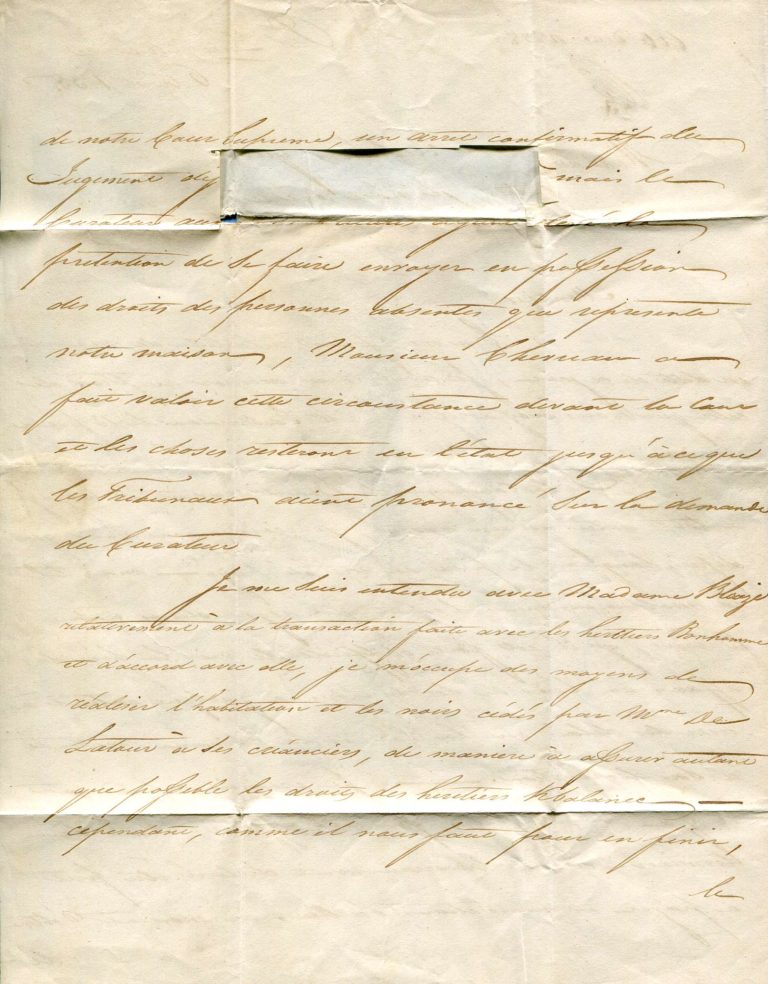 de notre Cour Suprême, un arret confirmatif du
Jugement mais le
Curateur aux
pretention de se faire envoyer en possession
des droits des personnes absentes que represente
notre maison, Monsieur Cherreau a
fait valoir cette circonstance devant la Cour
et les choses resteront en l'état jusqu'à ce que
les Tribunaux aient prononcé sur la demande
du Curateur
Je me suis entendu avec Madame Blaize
relativement à la transaction faite avec les heritiers Bonhomme
et d'accord avec elle, je m'occupe des moyens de
réaliser l'habitation et les noirs cédés par Mme De
Latour à ses créanciers, de manière à assurer autant
que possible les droits des heritiers
cependant, comme il nous faut pour en finir,
le